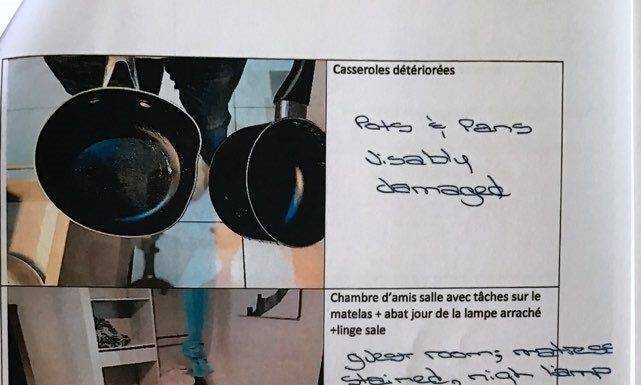 Casseroles détériorées
Pots & Pans
visably
damaged
Chambre d'amis salle avec tâches sur le
matelas + abat jour de la lampe arraché
+linge sale
guest room; matress
stained, nigh lamp